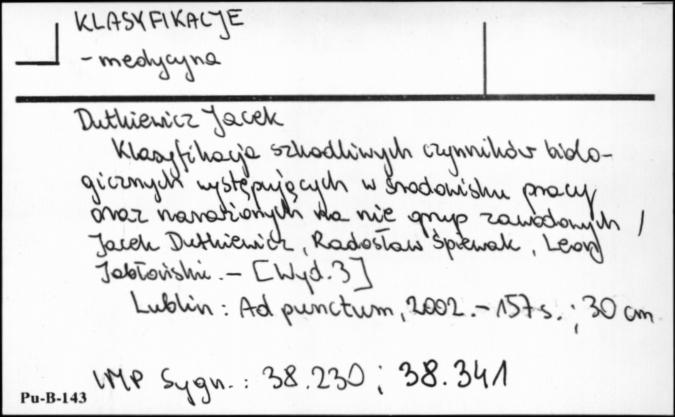 KLASYFIKACJE
- medycyna
Dutkiewicz Jacek
Klasyfikacja szkodliwych czynników biolo-
gicznych występujących w środowisku pracy
oraz narażonych na nie grup zawodowych /
Jacek Dutkiewicz, Radosław Śpiewak, Leon
Jabłoński. - [Wyd. 3]
Lublin : Ad punctum, 2002. - 157 s. ; 30 cm
IMP Sygn. : 38.230 ; 38.341
Pu-B-143